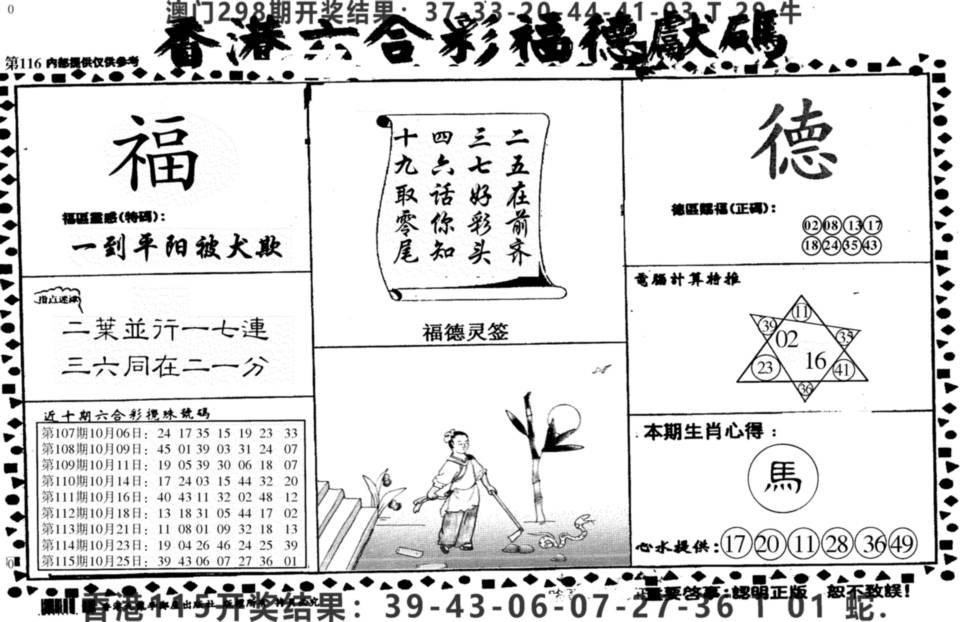 澳门298期开奖结果：37-33-20-44-41-03 T 29 牛
香港六合彩福德獻碼
第116 内部提供仅供参考
福
福區靈感(特碼)：
一到平阳被犬欺
指点迷津
二葉並行一七連
三六同在二一分
近十期六合彩攪珠號碼
第107期10月06日：24 17 35 15 19 23 33
第108期10月09日：45 01 39 03 31 24 07
第109期10月11日：19 05 39 30 06 18 07
第110期10月14日：17 24 03 15 44 32 20
第111期10月16日：40 43 11 32 02 48 12
第112期10月18日：13 18 31 05 44 17 02
第113期10月21日：11 08 01 09 32 18 13
第114期10月23日：19 04 26 46 24 25 39
第115期10月25日：39 43 06 07 27 36 01
二五在前齐
三七好彩头
四六话你知
十九取零尾
福德灵签
德
德區賜福(正碼)：
02 08 13 17
18 24 35 43
電腦計算特推
11
39 35
02
16
23 41
36
本期生肖心得：
馬
心水提供：17 20 11 28 36 49
重要啓事：認明正版 恕不致誤！
香港115开奖结果：39-43-06-07-27-36 T 01 蛇.